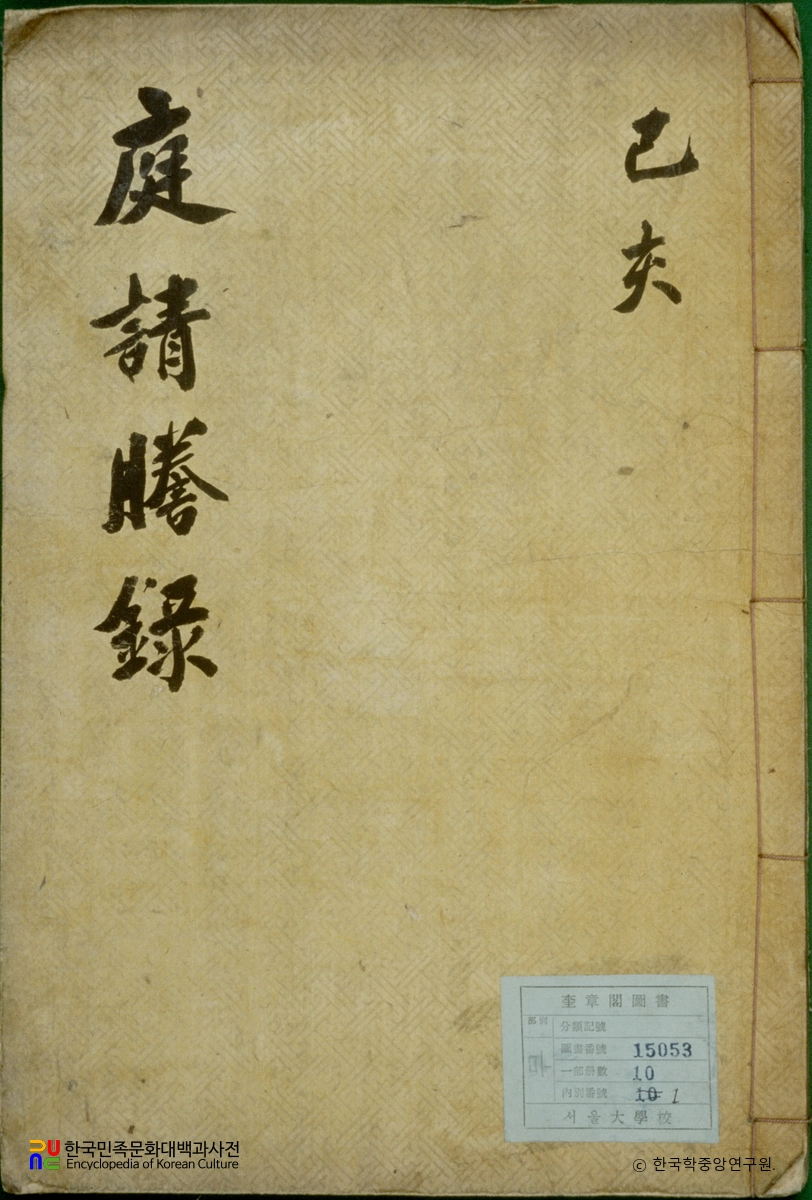 己亥
庭請謄錄
奎章閣圖書
分類記號
圖書番號 15053
一部冊數 10
內別番號 10 1
서울大學校
한국민족문화대백과사전
Encyclopedia of Korean Culture
ⓒ 한국학중앙연구원.